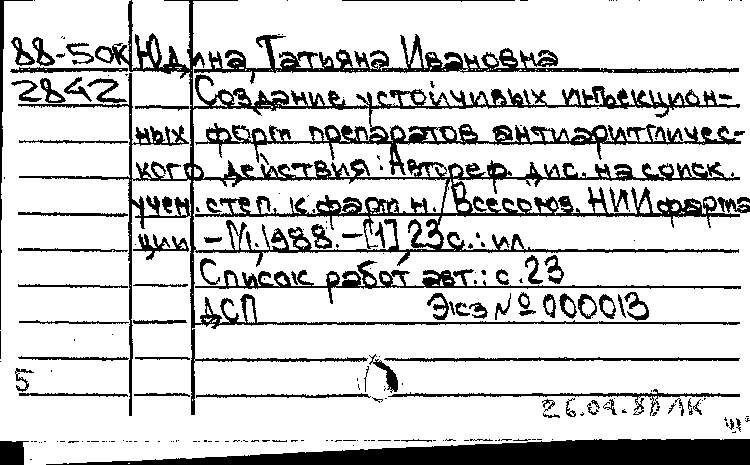 88-50К Юдина Татьяна Ивановна
2842 Создание устойчивых инъекцион-
ных форм препаратов антиаритмичес-
кого действия: Автореф. дис. на соиск.
учен. степ. к.фарм.н. / Всесоюз. НИИ фарма
ции – М. 1988. – [1] 23 с.: ил
Список работ авт.: с. 23
ДСП Экз № 000013
5
26.04.88 ЛК